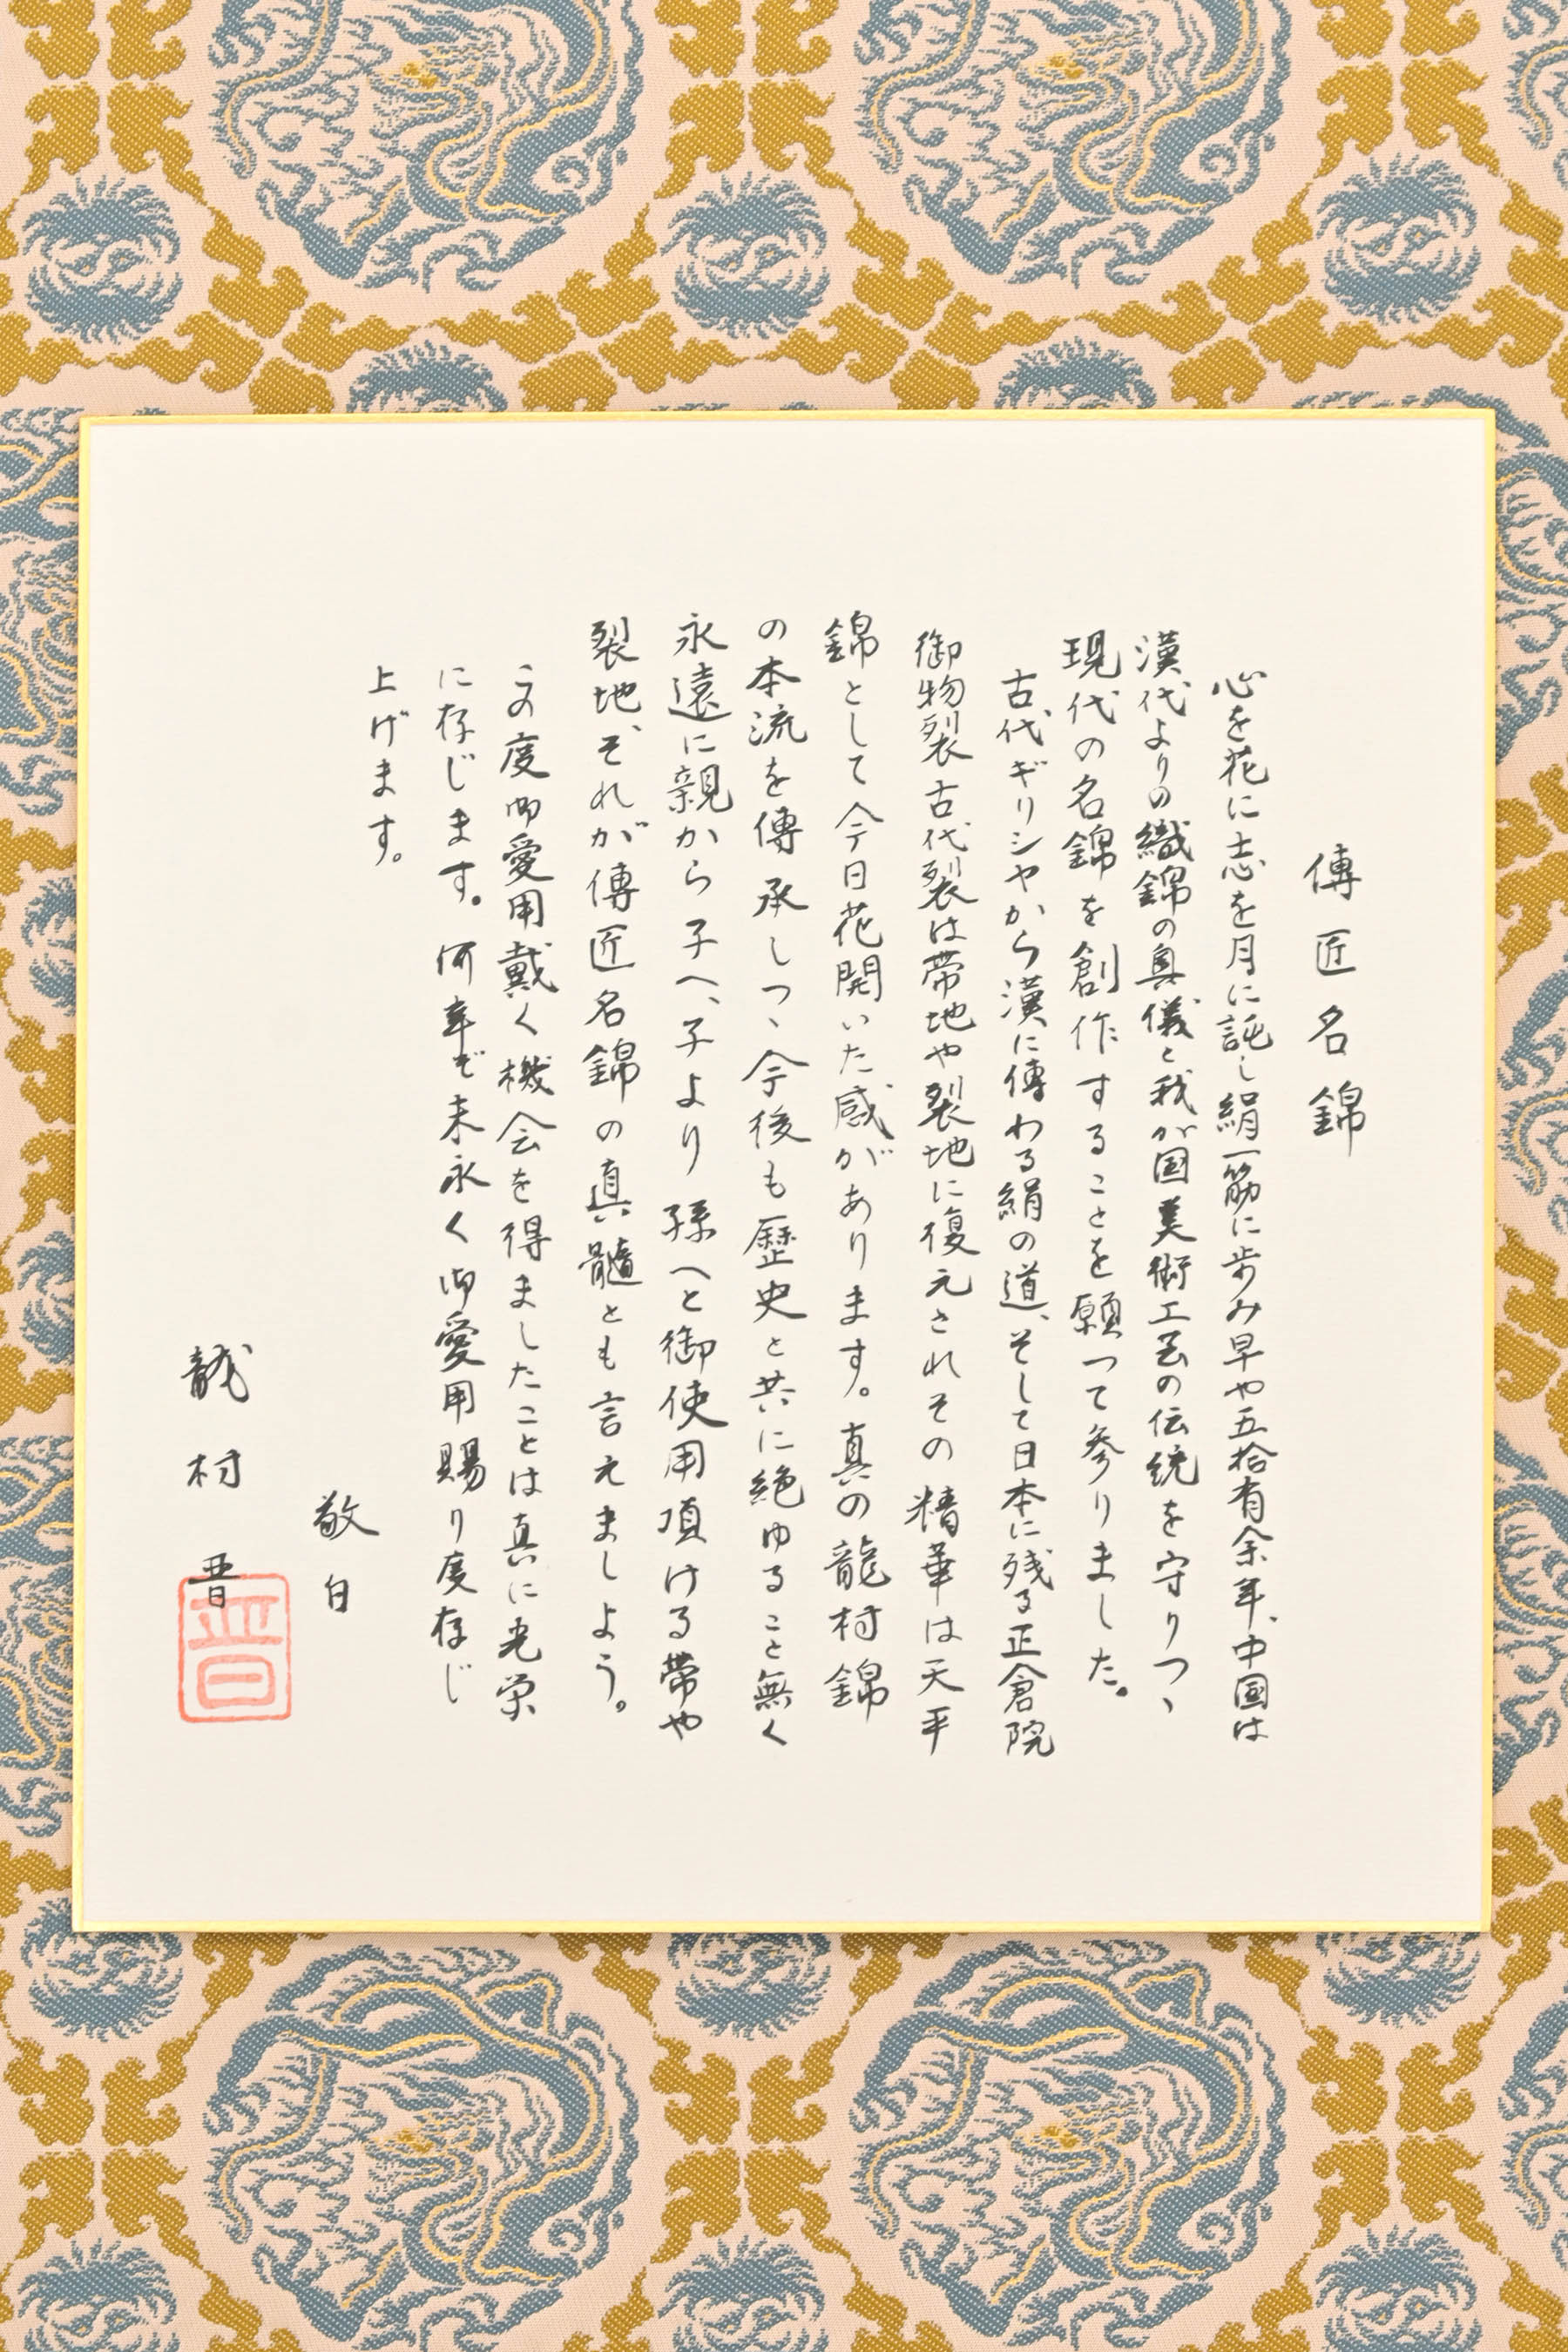 傳匠名錦
心を花に志を月に託し絹一筋に歩み早や五拾有余年、中国は
漢代よりの織錦の奥儀と我が国美術工芸の伝統を守りつゝ
現代の名錦を創作することを願つて参りました。
古代ギリシヤから漢に傳わる絹の道、そして日本に残る正倉院
御物裂古代裂は帯地や裂地に復元されその精華は天平
錦として今日花開いた感があります。真の龍村錦
の本流を傳承しつゝ今後も歴史と共に絶ゆること無く
永遠に親から子へ、子より孫へと御使用頂ける帯や
裂地、それが傳匠名錦の真髄とも言えましよう。
この度御愛用戴く機会を得ましたことは真に光栄
に存じます。何卒ぞ末永く御愛用賜り度存じ
上げます。
敬白
龍村晋
晋